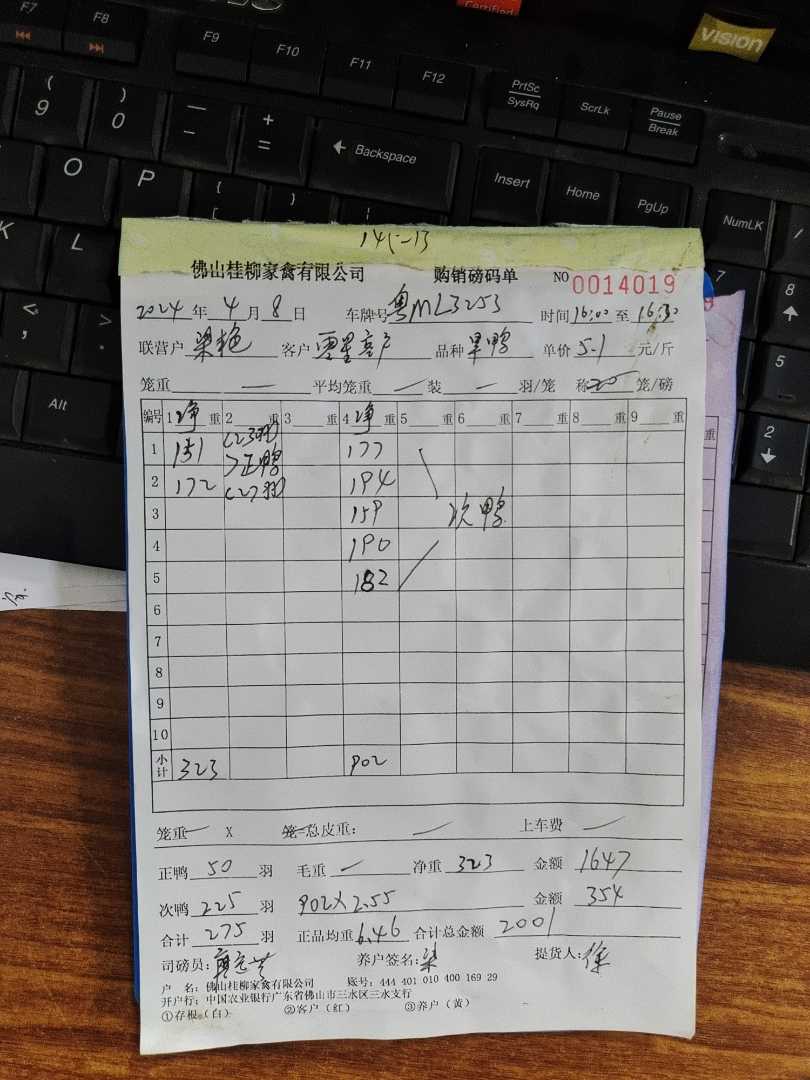 F7 F8 F9 F10 F11 F12 PrtSc SysRq ScrLk Pause Break
Certified
VISION
( 9 ) 0 — - + = Backspace Insert Home PgUp NumLK /
O P { [ } ]
K L : ;
< , > .
Alt
8
5
2
145-13
佛山桂柳家禽有限公司 购销磅码单 NO 0014019
2024年4月8日 车牌号粤ML3253 时间16:00至16:30
联营户梁艳 客户零星客户 品种 单价5.1元/斤
笼重 — 平均笼重 — 装 — 羽/笼 称 笼/磅
编号 1净重 2 重 3 重 4净重 5 重 6 重 7 重 8 重 9 重
1 151 (23羽) 177
>正鸭
2 172 (27羽) 194
3 159 次鸭
4 190
5 182
6
7
8
9
10
小计 323 902
笼重— X 笼=总皮重： — 上车费 —
正鸭50羽 毛重 — 净重323 金额1647
次鸭225羽 902×2.55 金额354
合计275羽 正品均重6.46 合计总金额2001
司磅员： 养户签名：梁 提货人：徐
户 名：佛山桂柳家禽有限公司 账号：444 401 010 400 169 29
开户行：中国农业银行广东省佛山市三水区三水支行
①存根（白） ②客户（红） ③养户（黄）